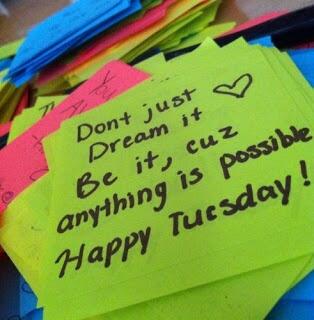 Dont just
Dream it
Be it, cuz
anything is possible
Happy Tuesday!